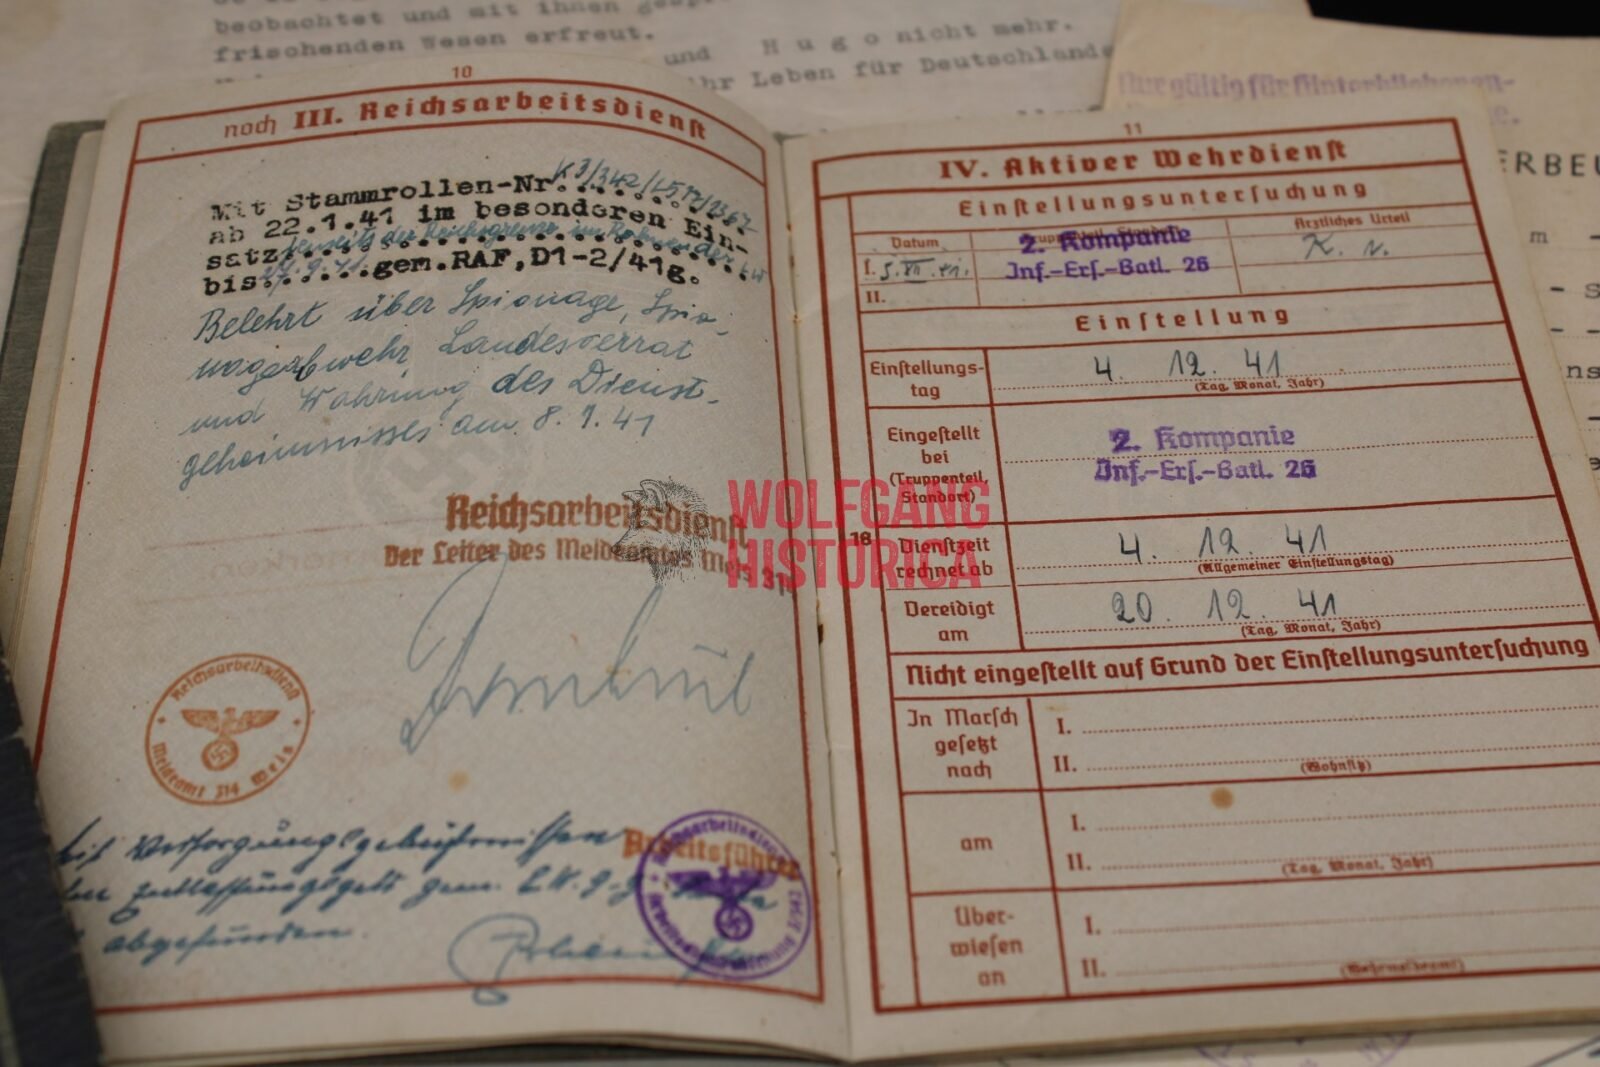 beobachtet und mit ihnen
frischenden Wesen erfreut.
und Hugo nicht mehr.
Ihr Leben für Deutschlands
Nur gültig für Hinterbliebenen-
ERBEU
10
noch III. Reichsarbeitsdienst
Mit Stammrollen-Nr. K3/342/
ab 22.1.41 im besonderen Ein-
satz: jenseits der Reichsgrenze im Rahmen der LW
bis 9.41 gem.RAF,D1-2/41g.
Belehrt über Spionage, Spio-
nageabwehr, Landesverrat
und Wahrung des Dienst-
geheimnisses am 8.9.41
Reichsarbeitsdienst
Der Leiter des Meldeamtes Wels 314
Reichsarbeitsdienst
Meldeamt 314 Wels
Mit Versorgungsgebührnissen
Entlassungsgeld gem.
abgefunden.
Arbeitsführer
WOLFGANG
HISTORICA
11
IV. Aktiver Wehrdienst
Einstellungsuntersuchung
Datum
Truppenteil, Standort
Ärztliches Urteil
I. 5.XII.41.
2. Kompanie
Inf.-Ers.-Batl. 26
K. v.
II.
Einstellung
Einstellungs-
tag
4. 12. 41
(Tag, Monat, Jahr)
Eingestellt
bei
(Truppenteil,
Standort)
2. Kompanie
Inf.-Ers.-Batl. 26
18
Dienstzeit
rechnet ab
4. 12. 41
(Allgemeiner Einstellungstag)
Vereidigt
am
20. 12. 41
(Tag, Monat, Jahr)
Nicht eingestellt auf Grund der Einstellungsuntersuchung
In Marsch
gesetzt
nach
I.
II.
(Wohnsitz)
am
I.
II.
(Tag, Monat, Jahr)
Über-
wiesen
an
I.
II.
(Wehrmeldeamt)